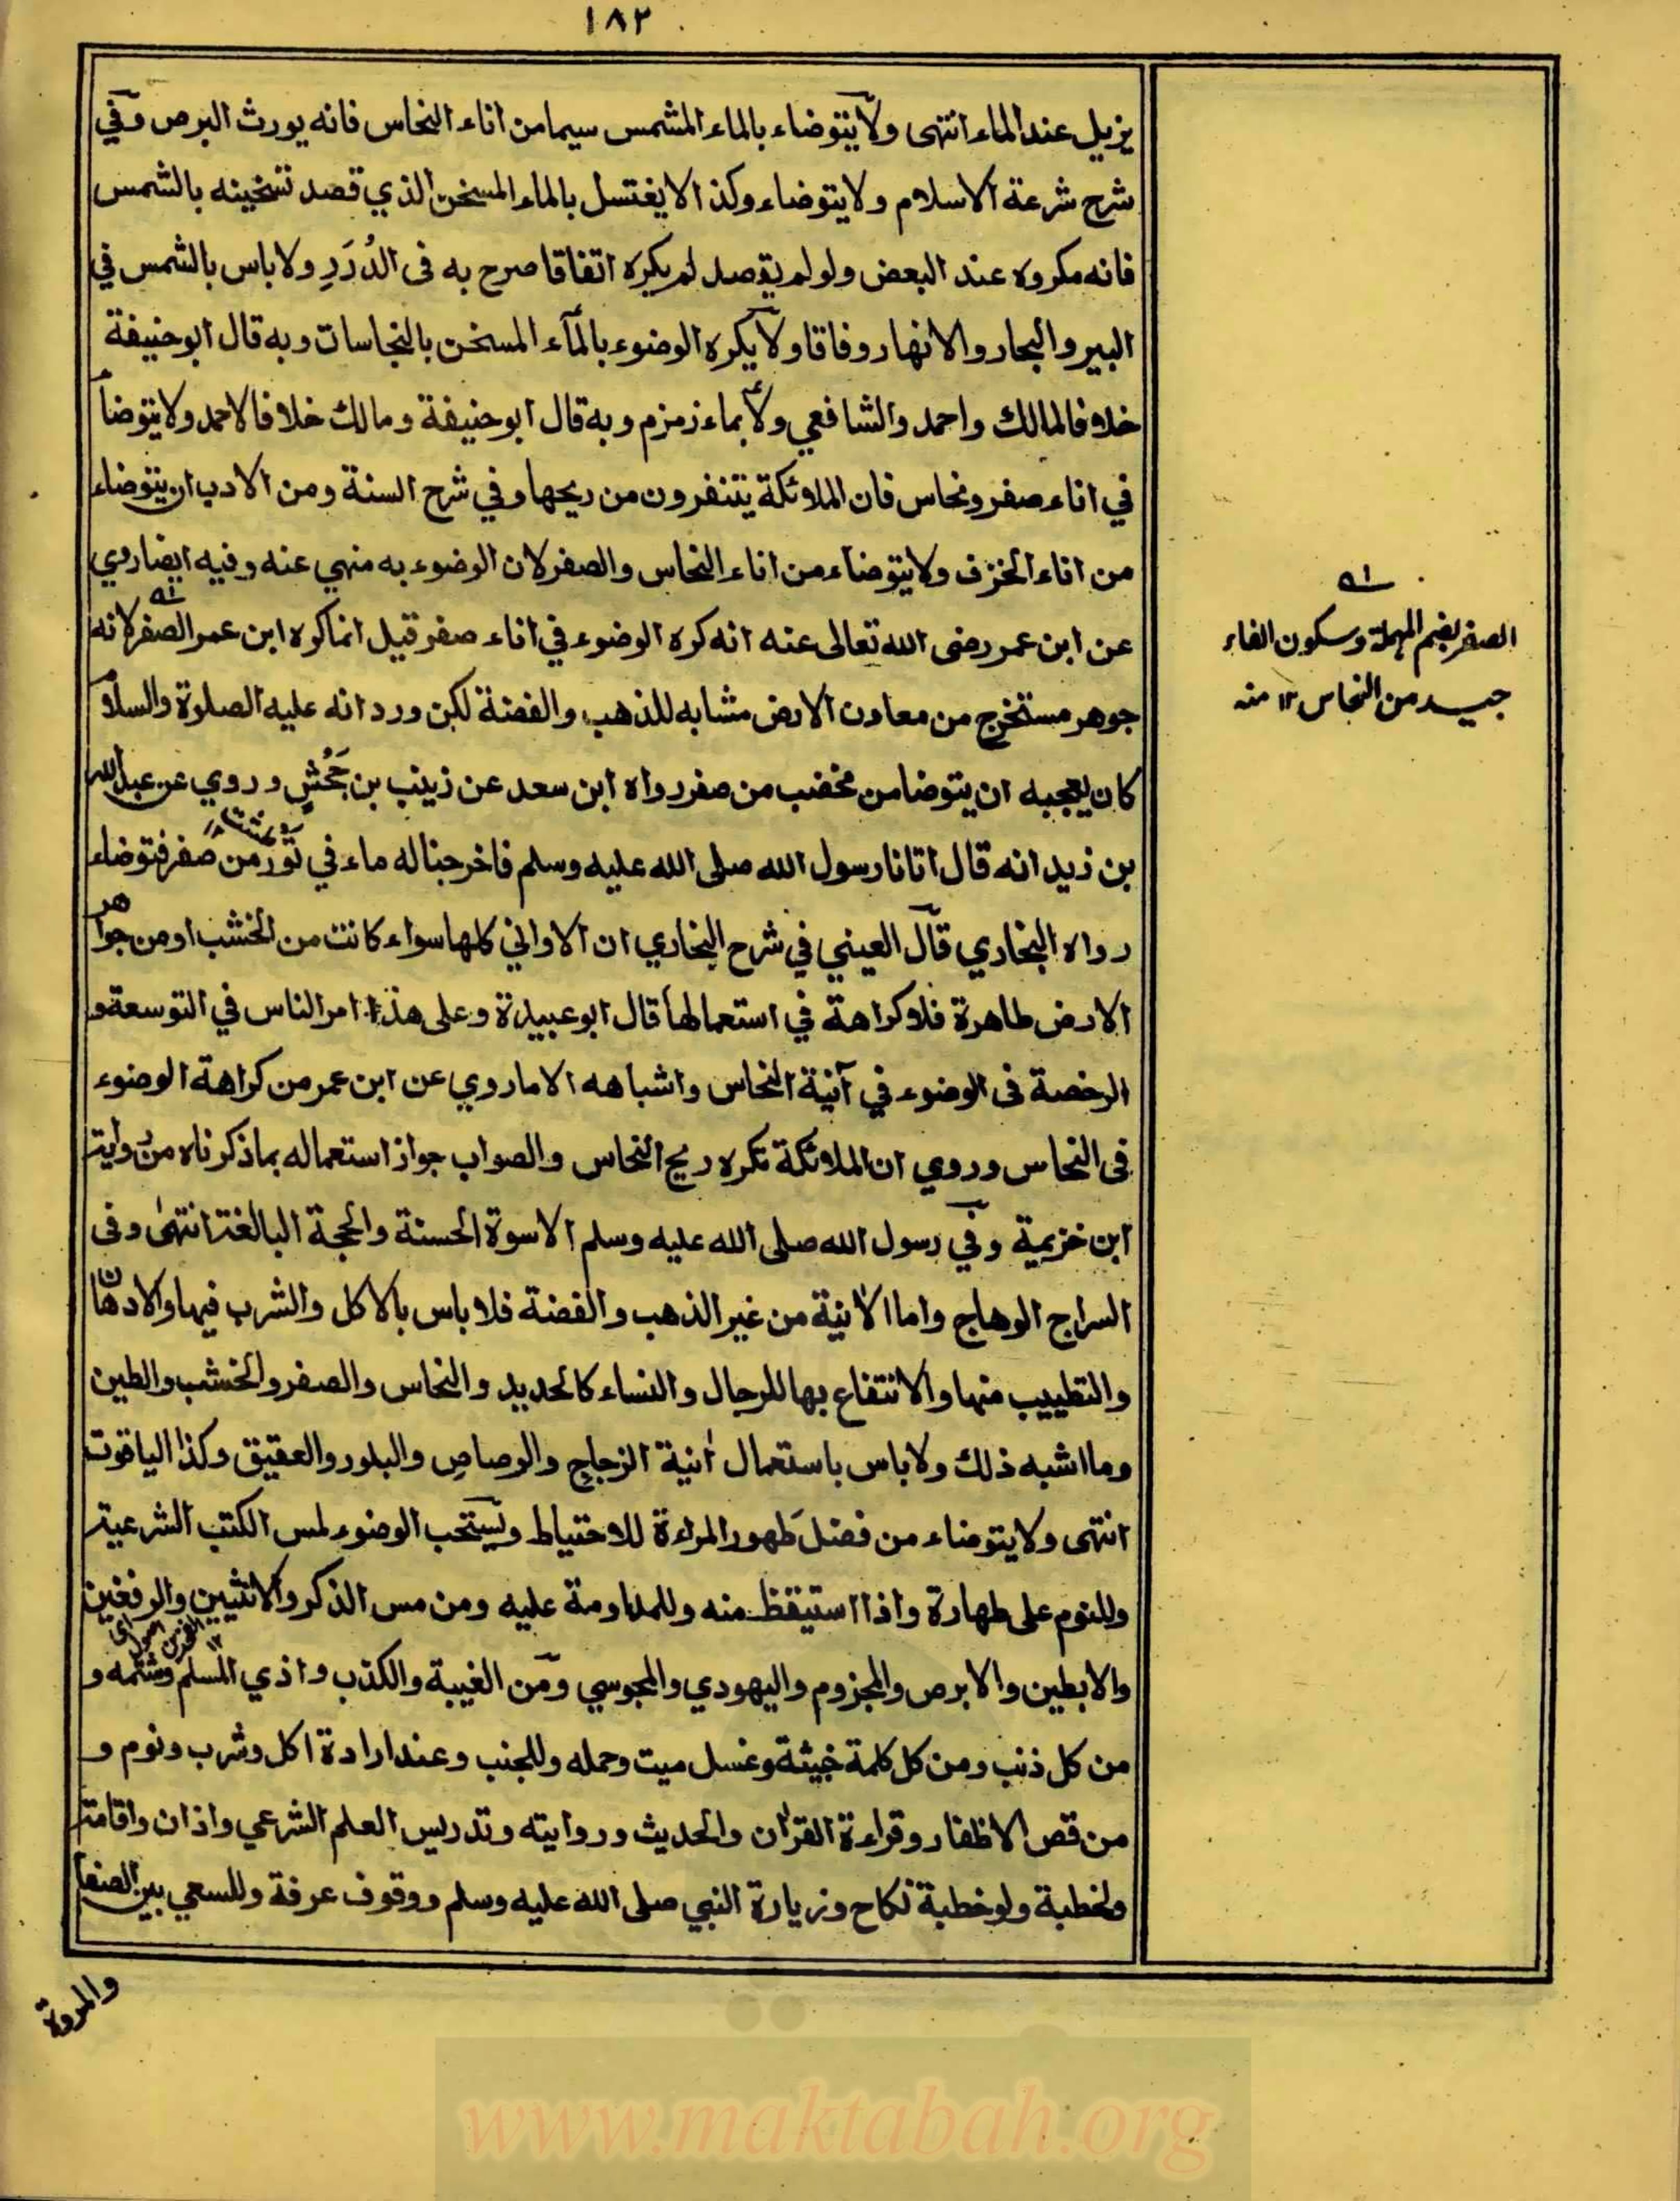 ١٨٢
يزيل عند الماء انتهى ولا يتوضاء بالماء المشمس سيما من اناء النحاس فانه يورث البرص وفي
شرح شرعة الاسلام ولا يتوضاء وكذا لا يغتسل بالماء المسخن الذي قصد تسخينه بالشمس
فانه مكروه عند البعض ولو لم يقصد لم يكره اتفاقا صرح به فى الدُرَرِ ولا باس بالشمس في
البير والبحار والانهار وفاقا ولا يكره الوضوء بالمآء المسخن بالنجاسات وبه قال ابوحنيفة
خلافا لمالك واحمد والشافعي ولا بماء زمزم وبه قال ابوحنيفة ومالك خلافا لاحمد ولا يتوضأ
في اناء صفر ونحاس فان الملائكة يتنفرون من ريحها وفي شرح السنة ومن الادب ان يتوضاء
من اناء الخزف ولا يتوضاء من اناء النحاس والصفر لان الوضوء به منهي عنه وفيه ايضا روي
عن ابن عمر رضى الله تعالى عنه انه كره الوضوء في اناء صفر قيل انما كره ابن عمر الصفر لانه
جوهر مستخرج من معادن الارض مشابه للذهب والفضة لكن ورد انه عليه الصلوة والسلام
كان يعجبه ان يتوضا من مخضب من صفر رواه ابن سعد عن زينب بن جَحْشٍ وروي عن عبد الله
بن زيد انه قال اتانا رسول الله صلى الله عليه وسلم فاخرجنا له ماء في تَوْرٍ من صفر فتوضاء
رواه البخاري قال العيني في شرح البخاري ان الاواني كلها سواء كانت من الخشب او من جواهر
الارض طاهرة فلا كراهة في استعمالها قال ابوعبيدة وعلى هذا امر الناس في التوسعة و
الرخصة فى الوضوء في آنية النحاس واشباهه الا ما روي عن ابن عمر من كراهة الوضوء
فى النحاس وروي ان الملائكة تكره ريح النحاس والصواب جواز استعماله بما ذكرناه من رواية
ابن خزيمة وفي رسول الله صلى الله عليه وسلم الاسوة الحسنة والحجة البالغة انتهى وفى
السراج الوهاج واما الآنية من غير الذهب والفضة فلا باس بالاكل والشرب فيها والادهان
والتطييب منها والانتفاع بها للرجال والنساء كالحديد والنحاس والصفر والخشب والطين
وما اشبه ذلك ولا باس باستعمال آنية الزجاج والرصاص والبلور والعقيق وكذا الياقوت
انتهى ولا يتوضاء من فضل طهور المراءة للاحتياط ويستحب الوضوء لمس الكتب الشرعية
وللنوم على طهارة واذا استيقظ منه وللمداومة عليه ومن مس الذكر والانثيين والرفغين
اى اصول الفخذين ١٢
والابطين والابرص والمجزوم واليهودي والمجوسي ومن الغيبة والكذب واذي المسلم وشتمه و
من كل ذنب ومن كل كلمة خبيثة وغسل ميت وحمله وللجنب وعند ارادة اكل وشرب ونوم و
من قص الاظفار وقراءة القرآن والحديث وروايته وتدريس العلم الشرعي واذان واقامة
وخطبة ولو خطبة نكاح وزيارة النبي صلى الله عليه وسلم ووقوف عرفة وللسعي بين الصفا
والمروة
الصفر بضم المهملة وسكون الفاء
جيد من النحاس ١٢ منه
www.maktabah.org